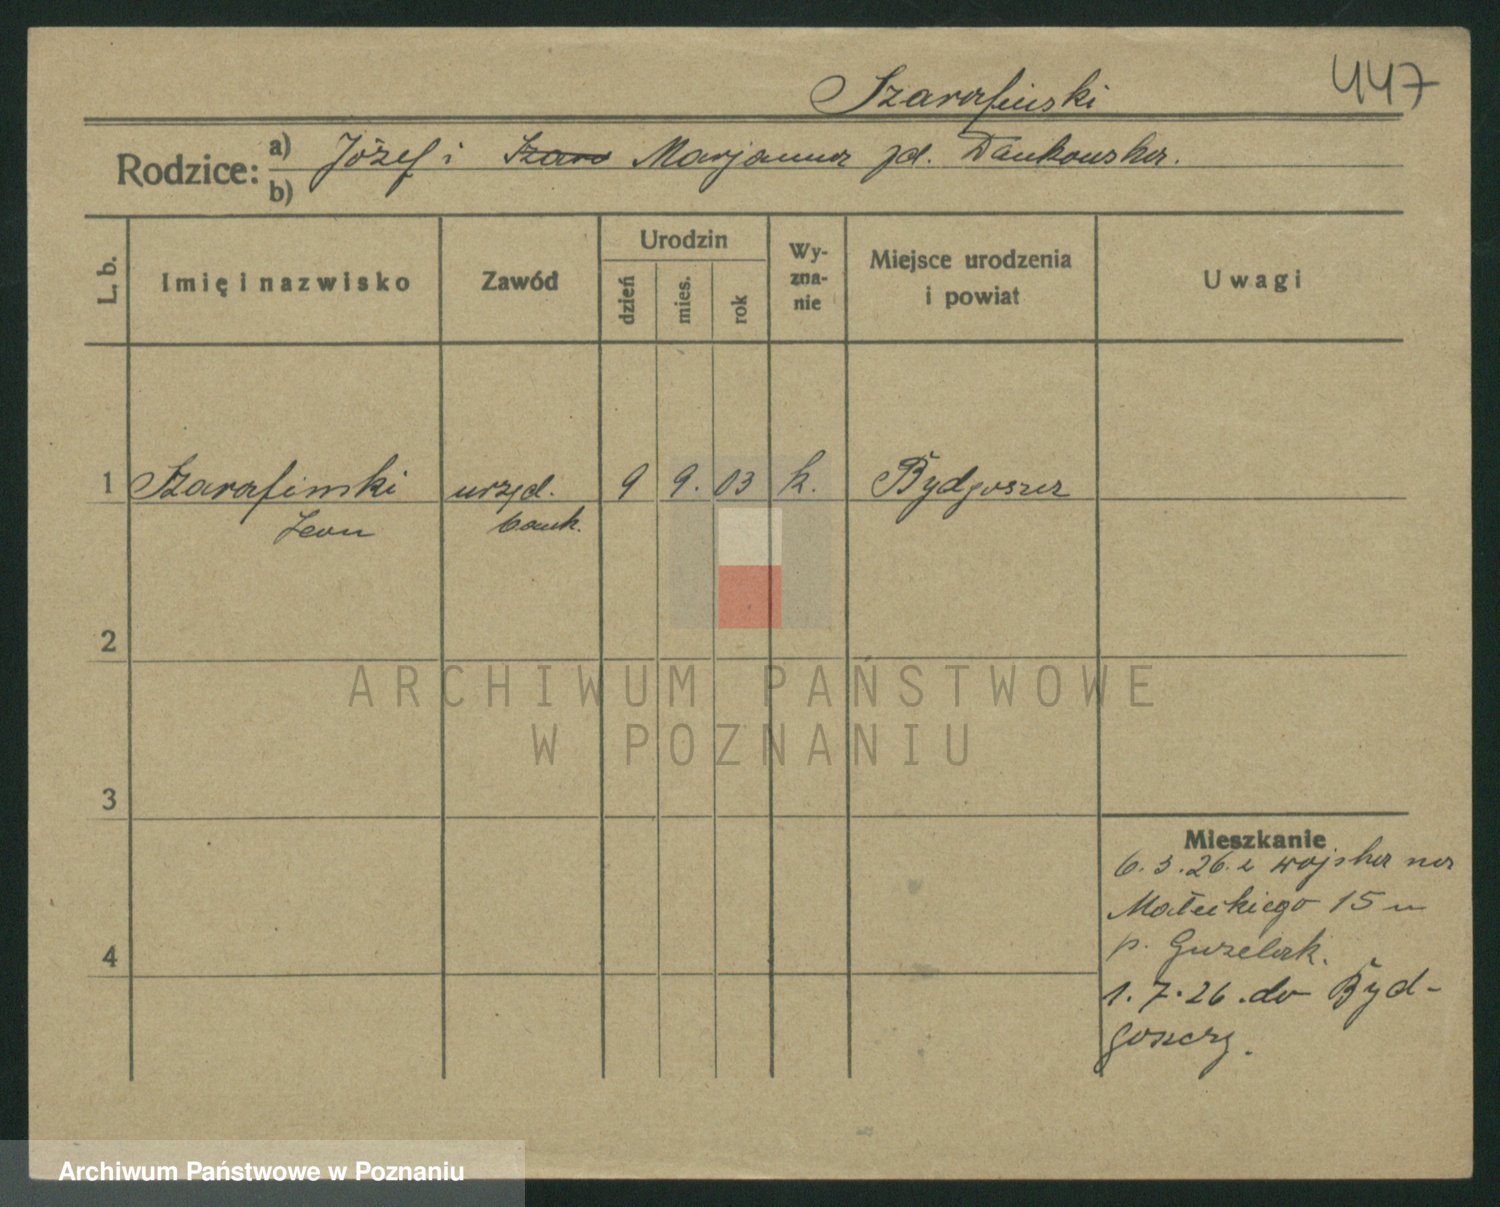 447
Szarafiński
Rodzice: a) Józef i Szara Marjanna zd. Dankowska.
b)
L. b.
Imię i nazwisko
Zawód
Urodzin
dzień
mies.
rok
Wy-
zna-
nie
Miejsce urodzenia
i powiat
Uwagi
1 Szarafiński urzęd. 9 9. 03 k. Bydgoszcz
Leon bank.
2
3
4
Mieszkanie
6. 3. 26. z wojska na
Małeckiego 15 m
p. Guzelak.
1. 7. 26. do Byd-
goszczy.
ARCHIWUM PAŃSTWOWE
W POZNANIU
Archiwum Państwowe w Poznaniu